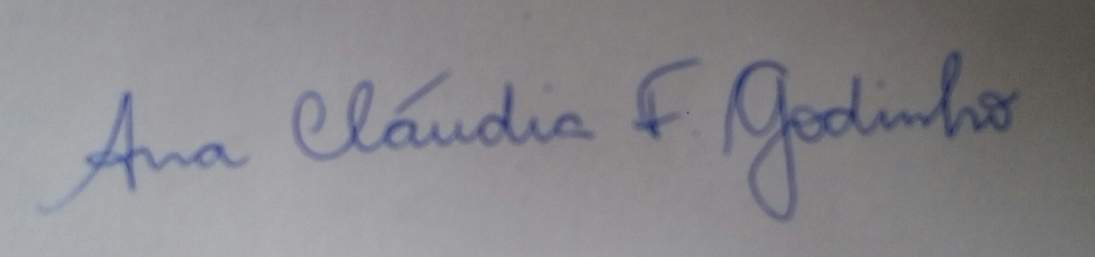 Ana Cláudia F. Godinho